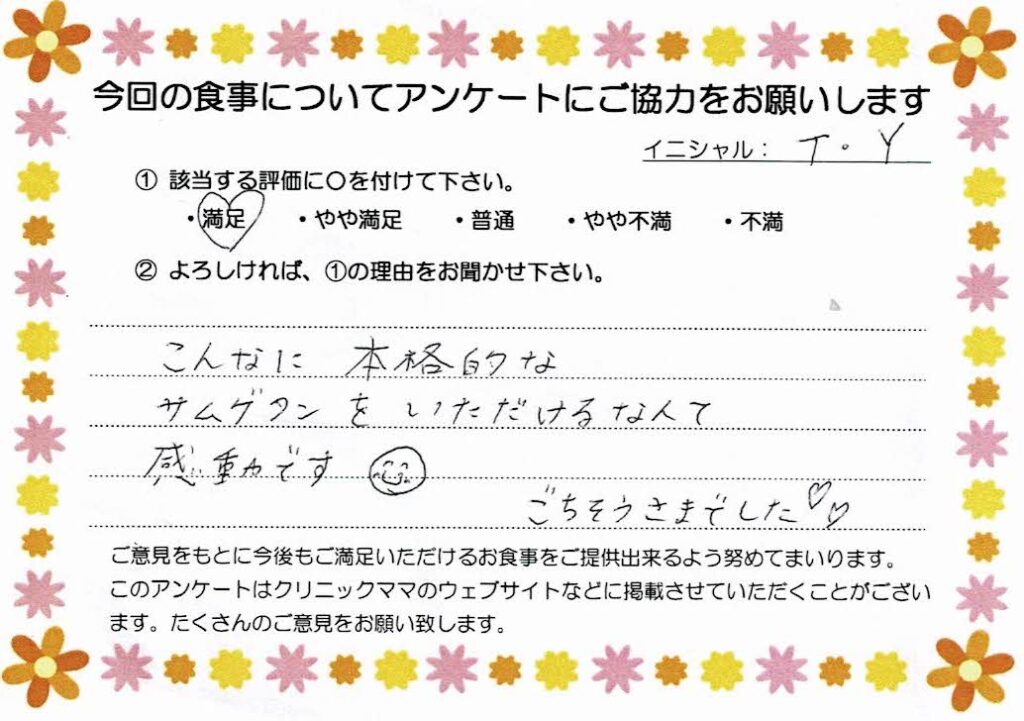 今回の食事についてアンケートにご協力をお願いします
イニシャル： T．Y
① 該当する評価に〇を付けて下さい。
・満足 ・やや満足 ・普通 ・やや不満 ・不満
② よろしければ、①の理由をお聞かせ下さい。
こんなに 本格的な
サムゲタンを いただけるなんて
感動です
ごちそうさまでした♡♡
ご意見をもとに今後もご満足いただけるお食事をご提供出来るよう努めてまいります。
このアンケートはクリニックママのウェブサイトなどに掲載させていただくことがござい
ます。たくさんのご意見をお願い致します。